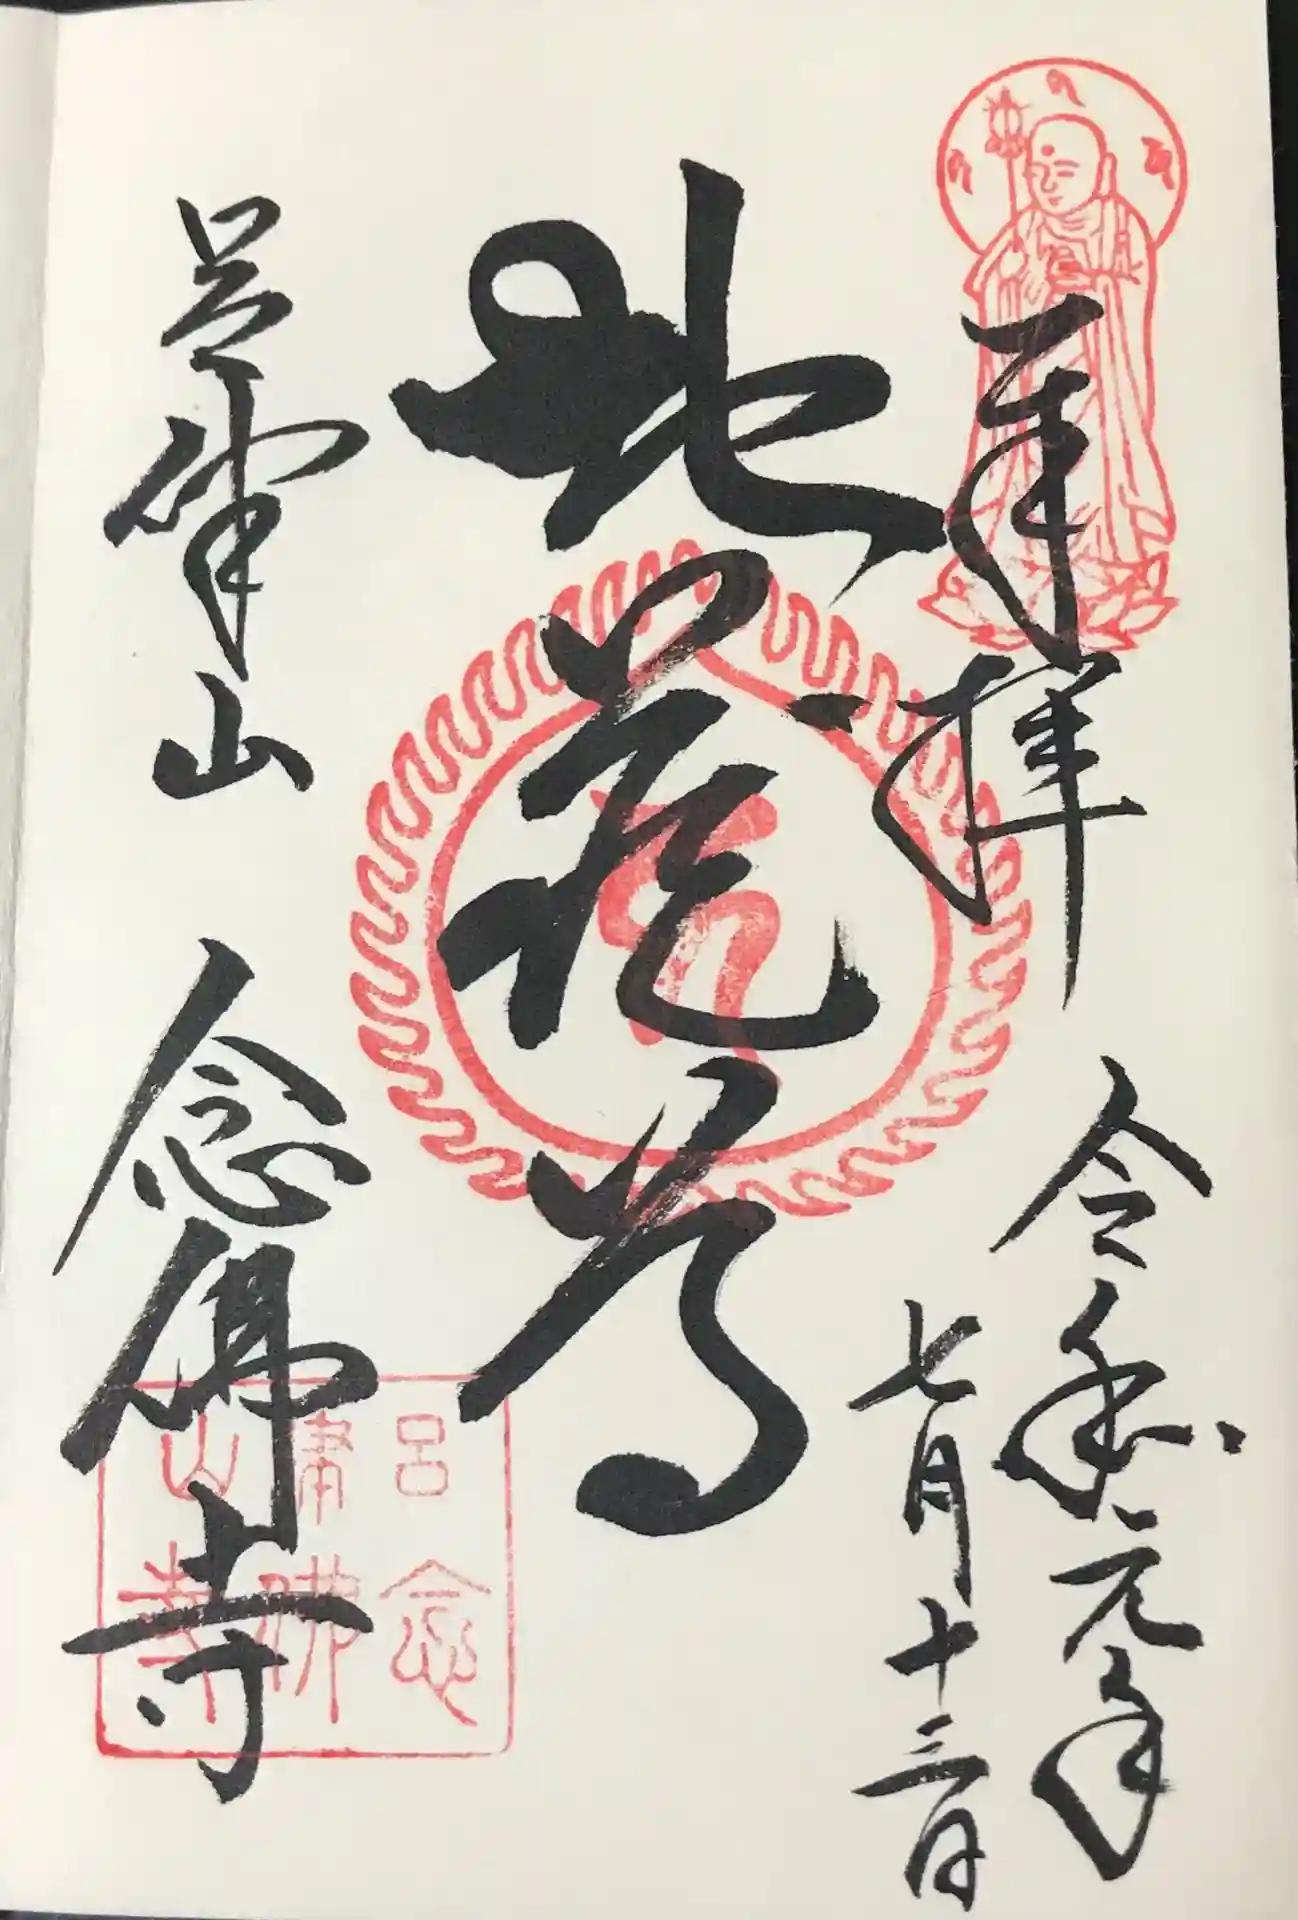 奉拝
令和元年
七月十三日
地蔵尊
呂山 念佛寺
呂山
念佛寺